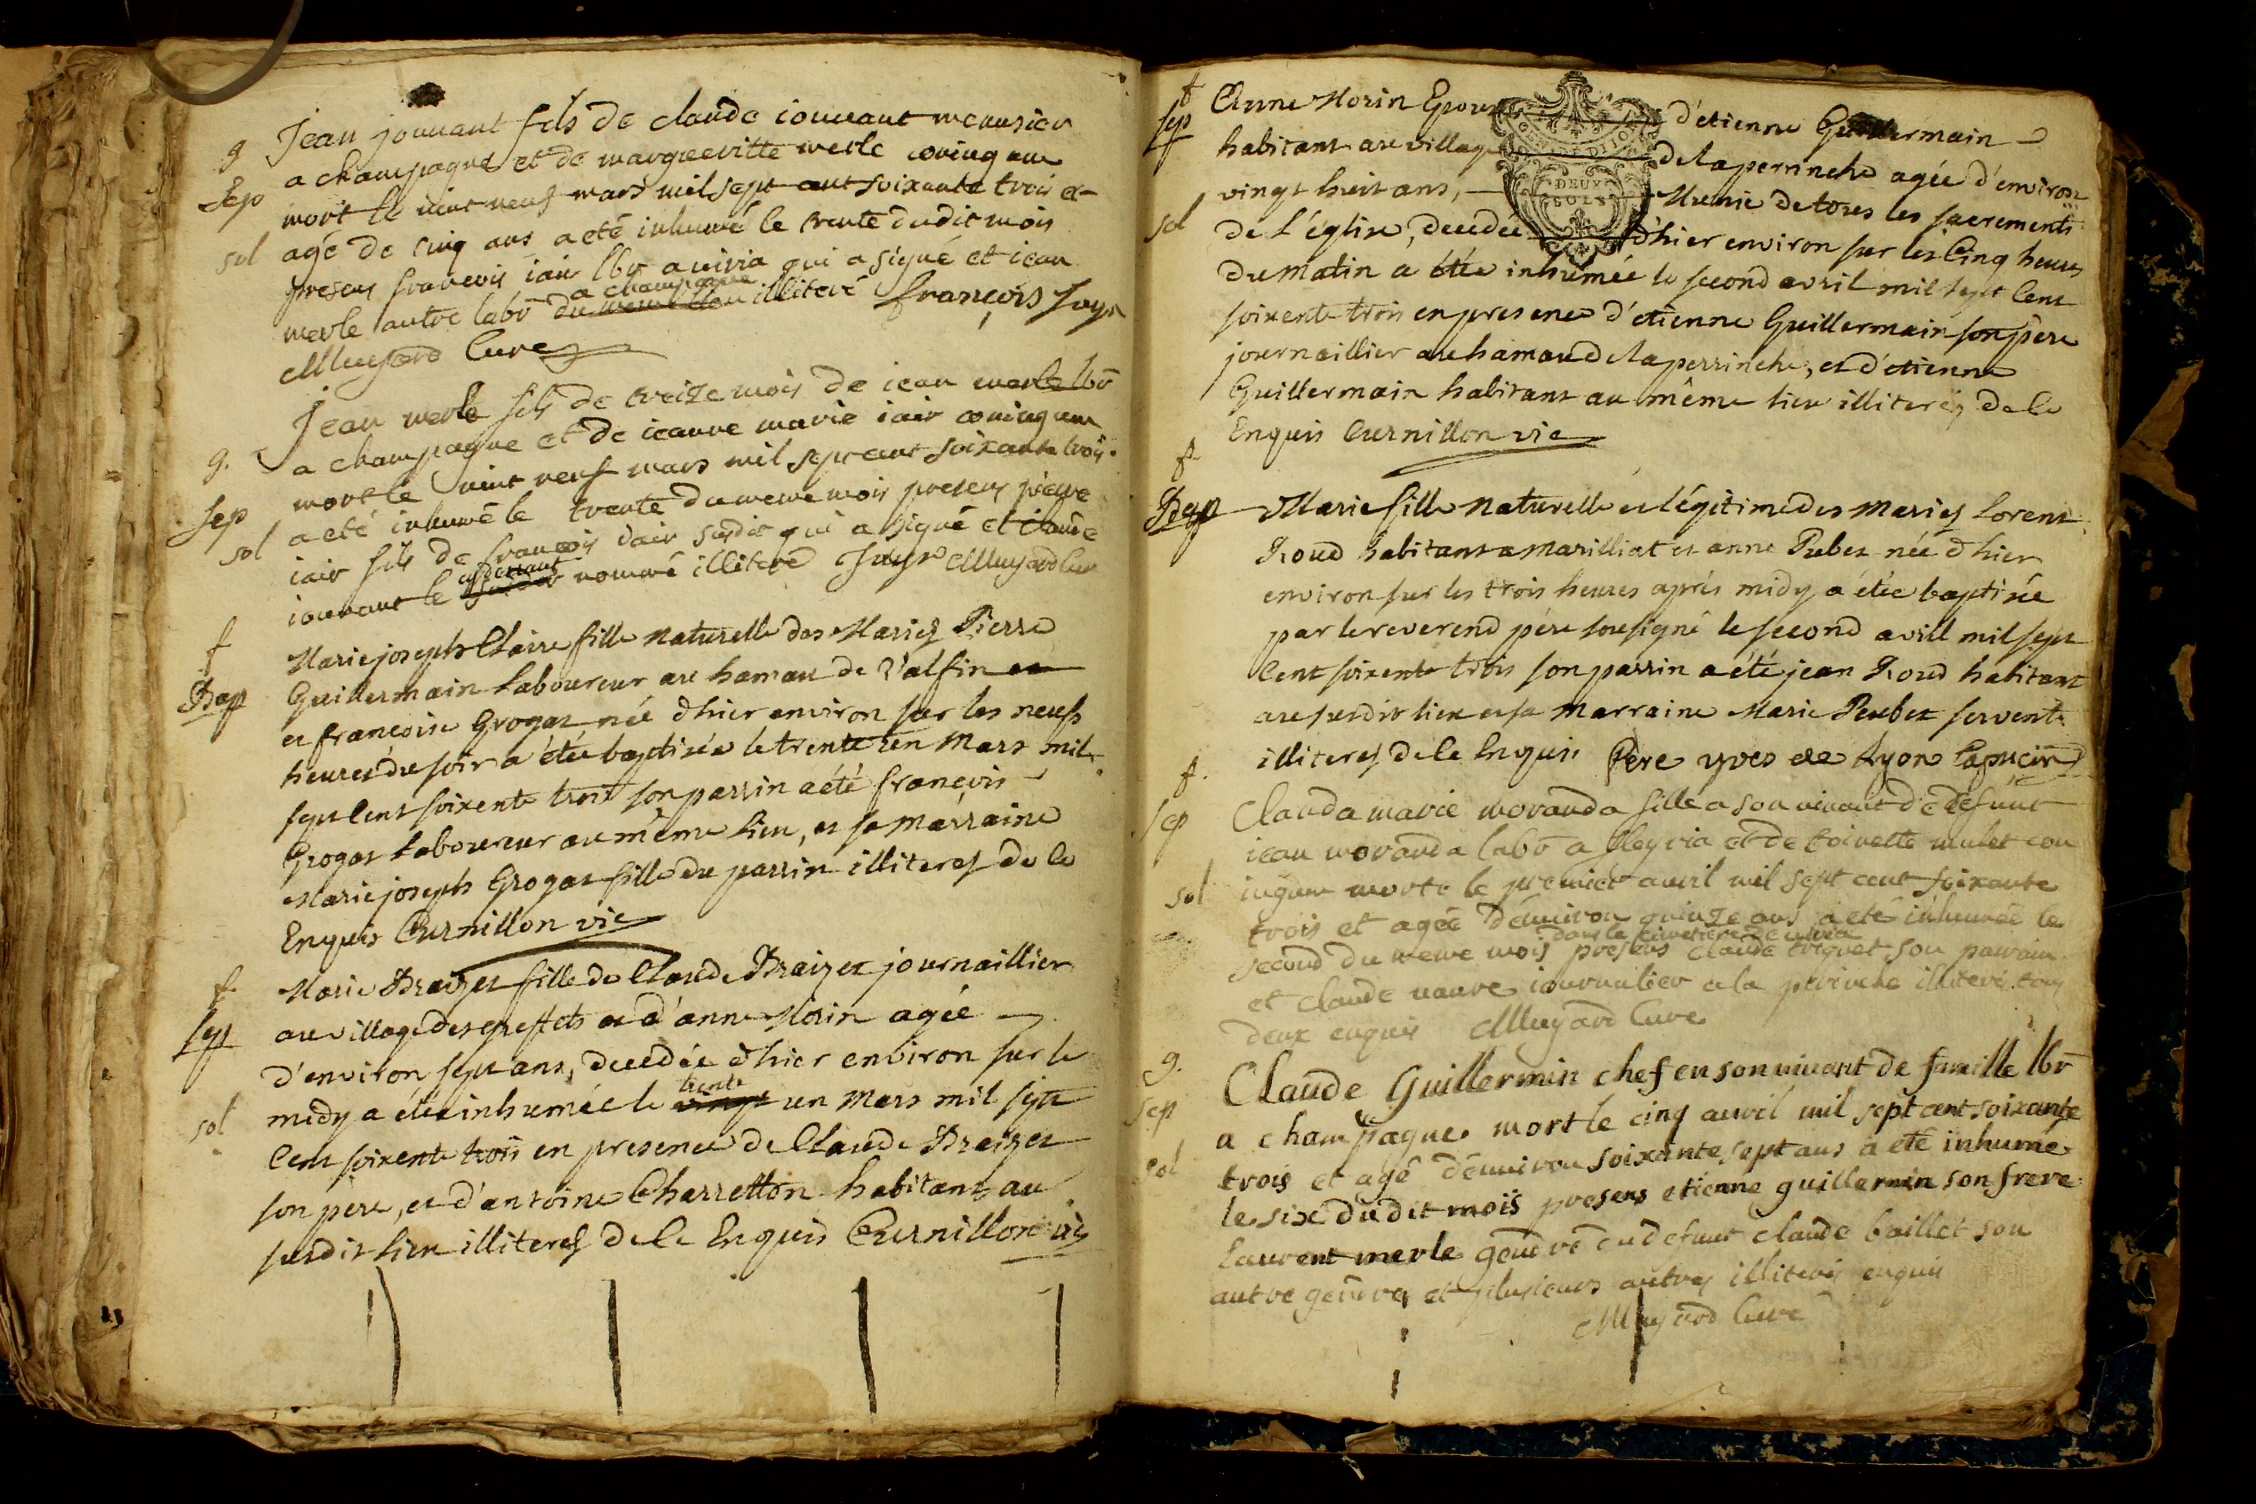 g
Sep
sol
Jean jouuant fils de claude iouuant menusier
a champagne et de margueritte merle coniugum
mort le vint neuf mars mil sept cent soixante trois et
agé de cinq ans a eté inhumé le trente dudit mois
presens francois iair lbr a uiria qui a signé et iean
merle autre labr a champagne illiteré françois Jayr
Muyard Cure
g.
sep
sol
Jean merle fils de treize mois de iean merle lbr
a champagne et de ieanne marie iair coniugum
mort le vint neuf mars mil sept cent soixante trois
a eté inhumé le trente du meme mois presens pierre
iair fils de francois iair susdit qui a signé et claude
iouuant le nommé illiteré Jayr Muyard Cure
f
Bap
Marie joseph Claire fille naturelle des Mariez Pierre
Guillermain Laboureur au hamau de Valfin
et francoise Grogat née dhier environ sur les neufs
heures du soir a étée baptisée le trente un Mars mil
sept Cent soixente trois son parrin a été françois
Grogat Laboureur au même Lieu, et sa Marraine
Marie joseph Grogat fille du parrin illiteres de ce
Enquis Curnillon vic
f
Sep
sol
Marie Braizet fille de Claude Braizet journaillier
au village et d'anne Morin agée
d'environ sept ans, decedée dhier environ sur le
midy a étée inhumée le trente un Mars mil sept
Cent soixente trois en presence de Claude Braizet
son père, et d'antoine Charretton habitans au
susdit Lieu illiteres de Ce Enquis Curnillon vic
f
sep
sol
Anne Morin Epouse d'etienne Guillermain
habitant au village de la perrinche agée d'environ
vingt huit ans, Munie de tous les sacrements
de l'église, decedée d'hier environ sur les Cinq heures
du Matin a étée inhumée le second avril mil sept Cent
soixente trois en presence d'etienne Guillermain son père
journaillier au hamau de la perrinche, et d'etienne
Guillermain habitant au même lieu illiterés de Ce
Enquis Curnillon vic
DEUX
SOLS
f
Bap
Marie fille naturelle et légitime des Mariez Lorent
Roud habitant a Marilliat et anne Pubet née dhier
environ sur les trois heures après midy a étée baptisée
par le reverend père sousigné le second avril mil sept
Cent soixente trois son parrin a été jean Roud habitant
au susdit lieu et sa Marraine Marie Peubet servente
illiteres de Ce Enquis Pere yves de Lyon Capucin
f.
sep
sol
Clauda marie moranda fille a son uiuant de defunt
iean moranda labr a et de toinette mulet con
iugum morte le premier auril mil sept cent soixante
trois et agée denuiron quinze ans a eté inhumée le
dans le cimetiere de uiria
second du meme mois presens claude triquet son pairain
et claude uaure iournalier a la perinche illiteré tous
deux enquis Muyard Cure
g.
sep
sol
Claude Guillermin chef en son uiuant de famille lbr
a champagne mort le cinq auril mil sept cent soixante
trois et agé denuiron soixante sept ans a eté inhumé
le six dudit mois presens etienne guillermin son frere
Laurent merle gendre dud defunt claude baillet son
autre gendre et plusieurs autres illiterés enquis
Muyard Cure